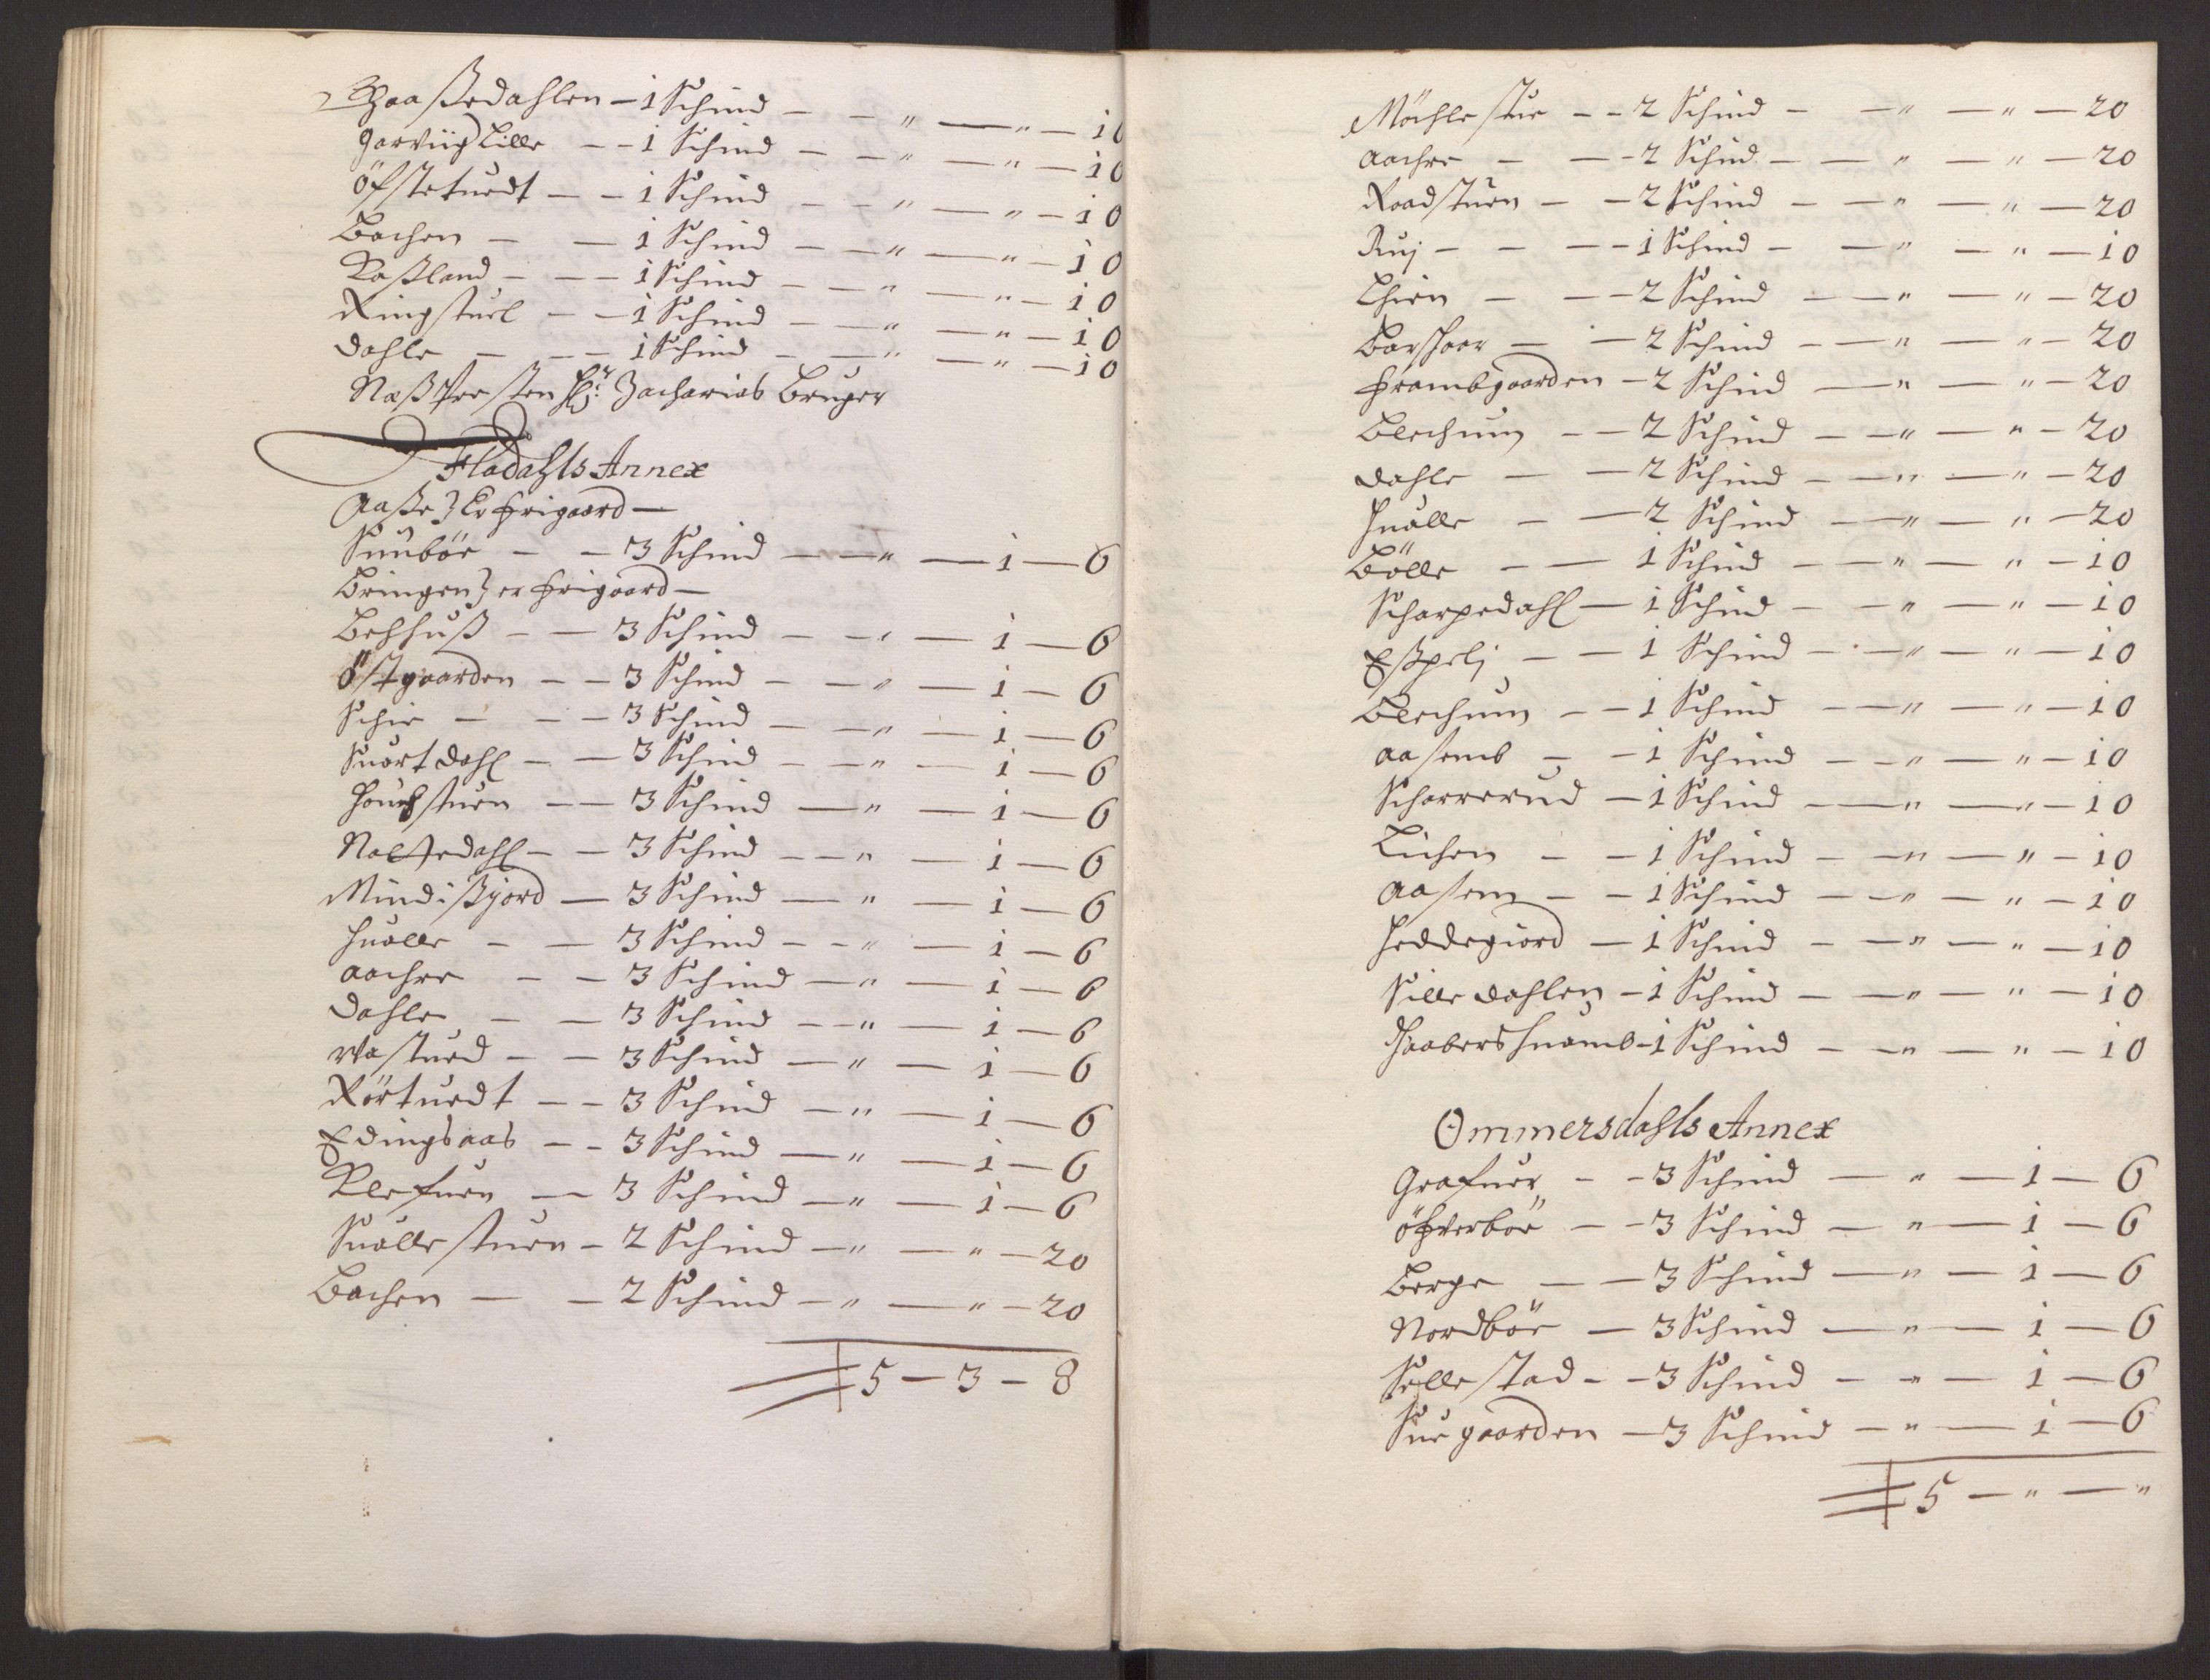 Haaßedahlen – 1 Schind – – " – " – 10
Garviig Lille – – 1 Schind – – " – " – 10
Öfstetuedt – – 1 Schind – – " – " – 10
Bachen – – 1 Schind – – " – " – 10
Kaßland – – – 1 Schind – – " – " – 10
Ringstuel – – 1 Schind – – " – " – 10
Dahle – – – 1 Schind – – " – " – 10
Næß Presten Hr: Zacharias Bruger
Fladahls Annex
Aaße } Er frigaard –
Sunböe – – 3 Schind – – " – 1 – 6
Bringen } er frigaard –
Behhuß – – 3 Schind – – " – 1 – 6
Östgaarden – – 3 Schind – – " – 1 – 6
Schie – – – 3 Schind – – " – 1 – 6
Suartdahl – – 3 Schind – – " – 1 – 6
Houchstuen – – 3 Schind – " – 1 – 6
– – 3 Schind – – " – 1 – 6
Mindißgord – 3 Schind – " – 1 – 6
Hualle – – 3 Schind – – " – 1 – 6
Aachre – – 3 Schind – " – 1 – 6
Dahle – – 3 Schind – – " – 1 – 6
– – 3 Schind – " – 1 – 6
Rörtuedt – – 3 Schind – " – 1 – 6
Edingsaas – – 3 Schind – " – 1 – 6
Klefuen – 3 Schind – " – 1 – 6
Suallestuen – 2 Schind – " – " – 20
Bachen – – 2 Schind – " – " – 20
5 – 3 – 8
Möchlestue – – 2 Schind – – " – " – 20
Aachre – – – 2 Schind – – " – " – 20
Raadstuen – – 2 Schind – – " – " – 20
Ruj – – – – 1 Schind – – " – " – 10
Lhien – – – 2 Schind – – " – " – 20
Barschoer – – 2 Schind – – " – " – 20
Frambgaarden – 2 Schind – " – " – 20
Blechum – – 2 Schind – – " – " – 20
Dahle – – 2 Schind – – " – " – 20
Hualle – – 2 Schind – – " – " – 20
Bölle – – 1 Schind – – " – " – 10
Scharpedahl – 1 Schind – – " – " – 10
Eßpelj – – 1 Schind – – " – " – 10
Blechum – – 1 Schind – – " – " – 10
Aasemb – – 1 Schind – – " – " – 10
Scharrerud – 1 Schind – – " – " – 10
Lichen – – 1 Schind – – " – " – 10
Aasem – – 1 Schind – – " – " – 10
Heddegiord – 1 Schind – – " – " – 10
Silledahlen – 1 Schind – – " – " – 10
Haabershuamb – 1 Schind – – " – " – 10
Ommersdahls Annex
Grafuer – – 3 Schind – " – 1 – 6
Öfverböe – – 3 Schind – " – 1 – 6
Berge – – 3 Schind – " – 1 – 6
Nordböe – 3 Schind – " – 1 – 6
Sellestad – – 3 Schind – " – 1 – 6
Suegaarden – 3 Schind – " – 1 – 6
5 – " – "